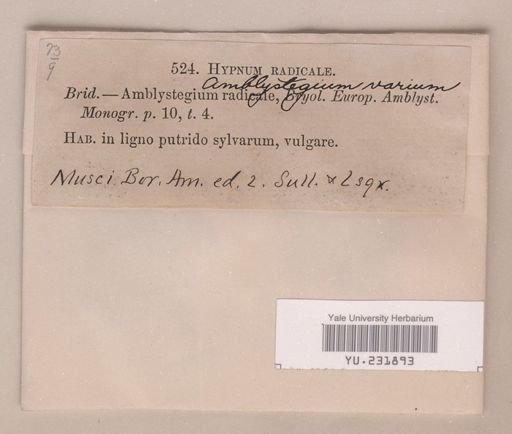 73/9
524. HYPNUM RADICALE.
Amblystegium varium
Brid.—Amblystegium radicale, Bryol. Europ. Amblyst.
Monogr. p. 10, t. 4.
HAB. in ligno putrido sylvarum, vulgare.
Musci Bor. Am. ed. 2. Sull. & Lsqx.
Yale University Herbarium
YU.231893